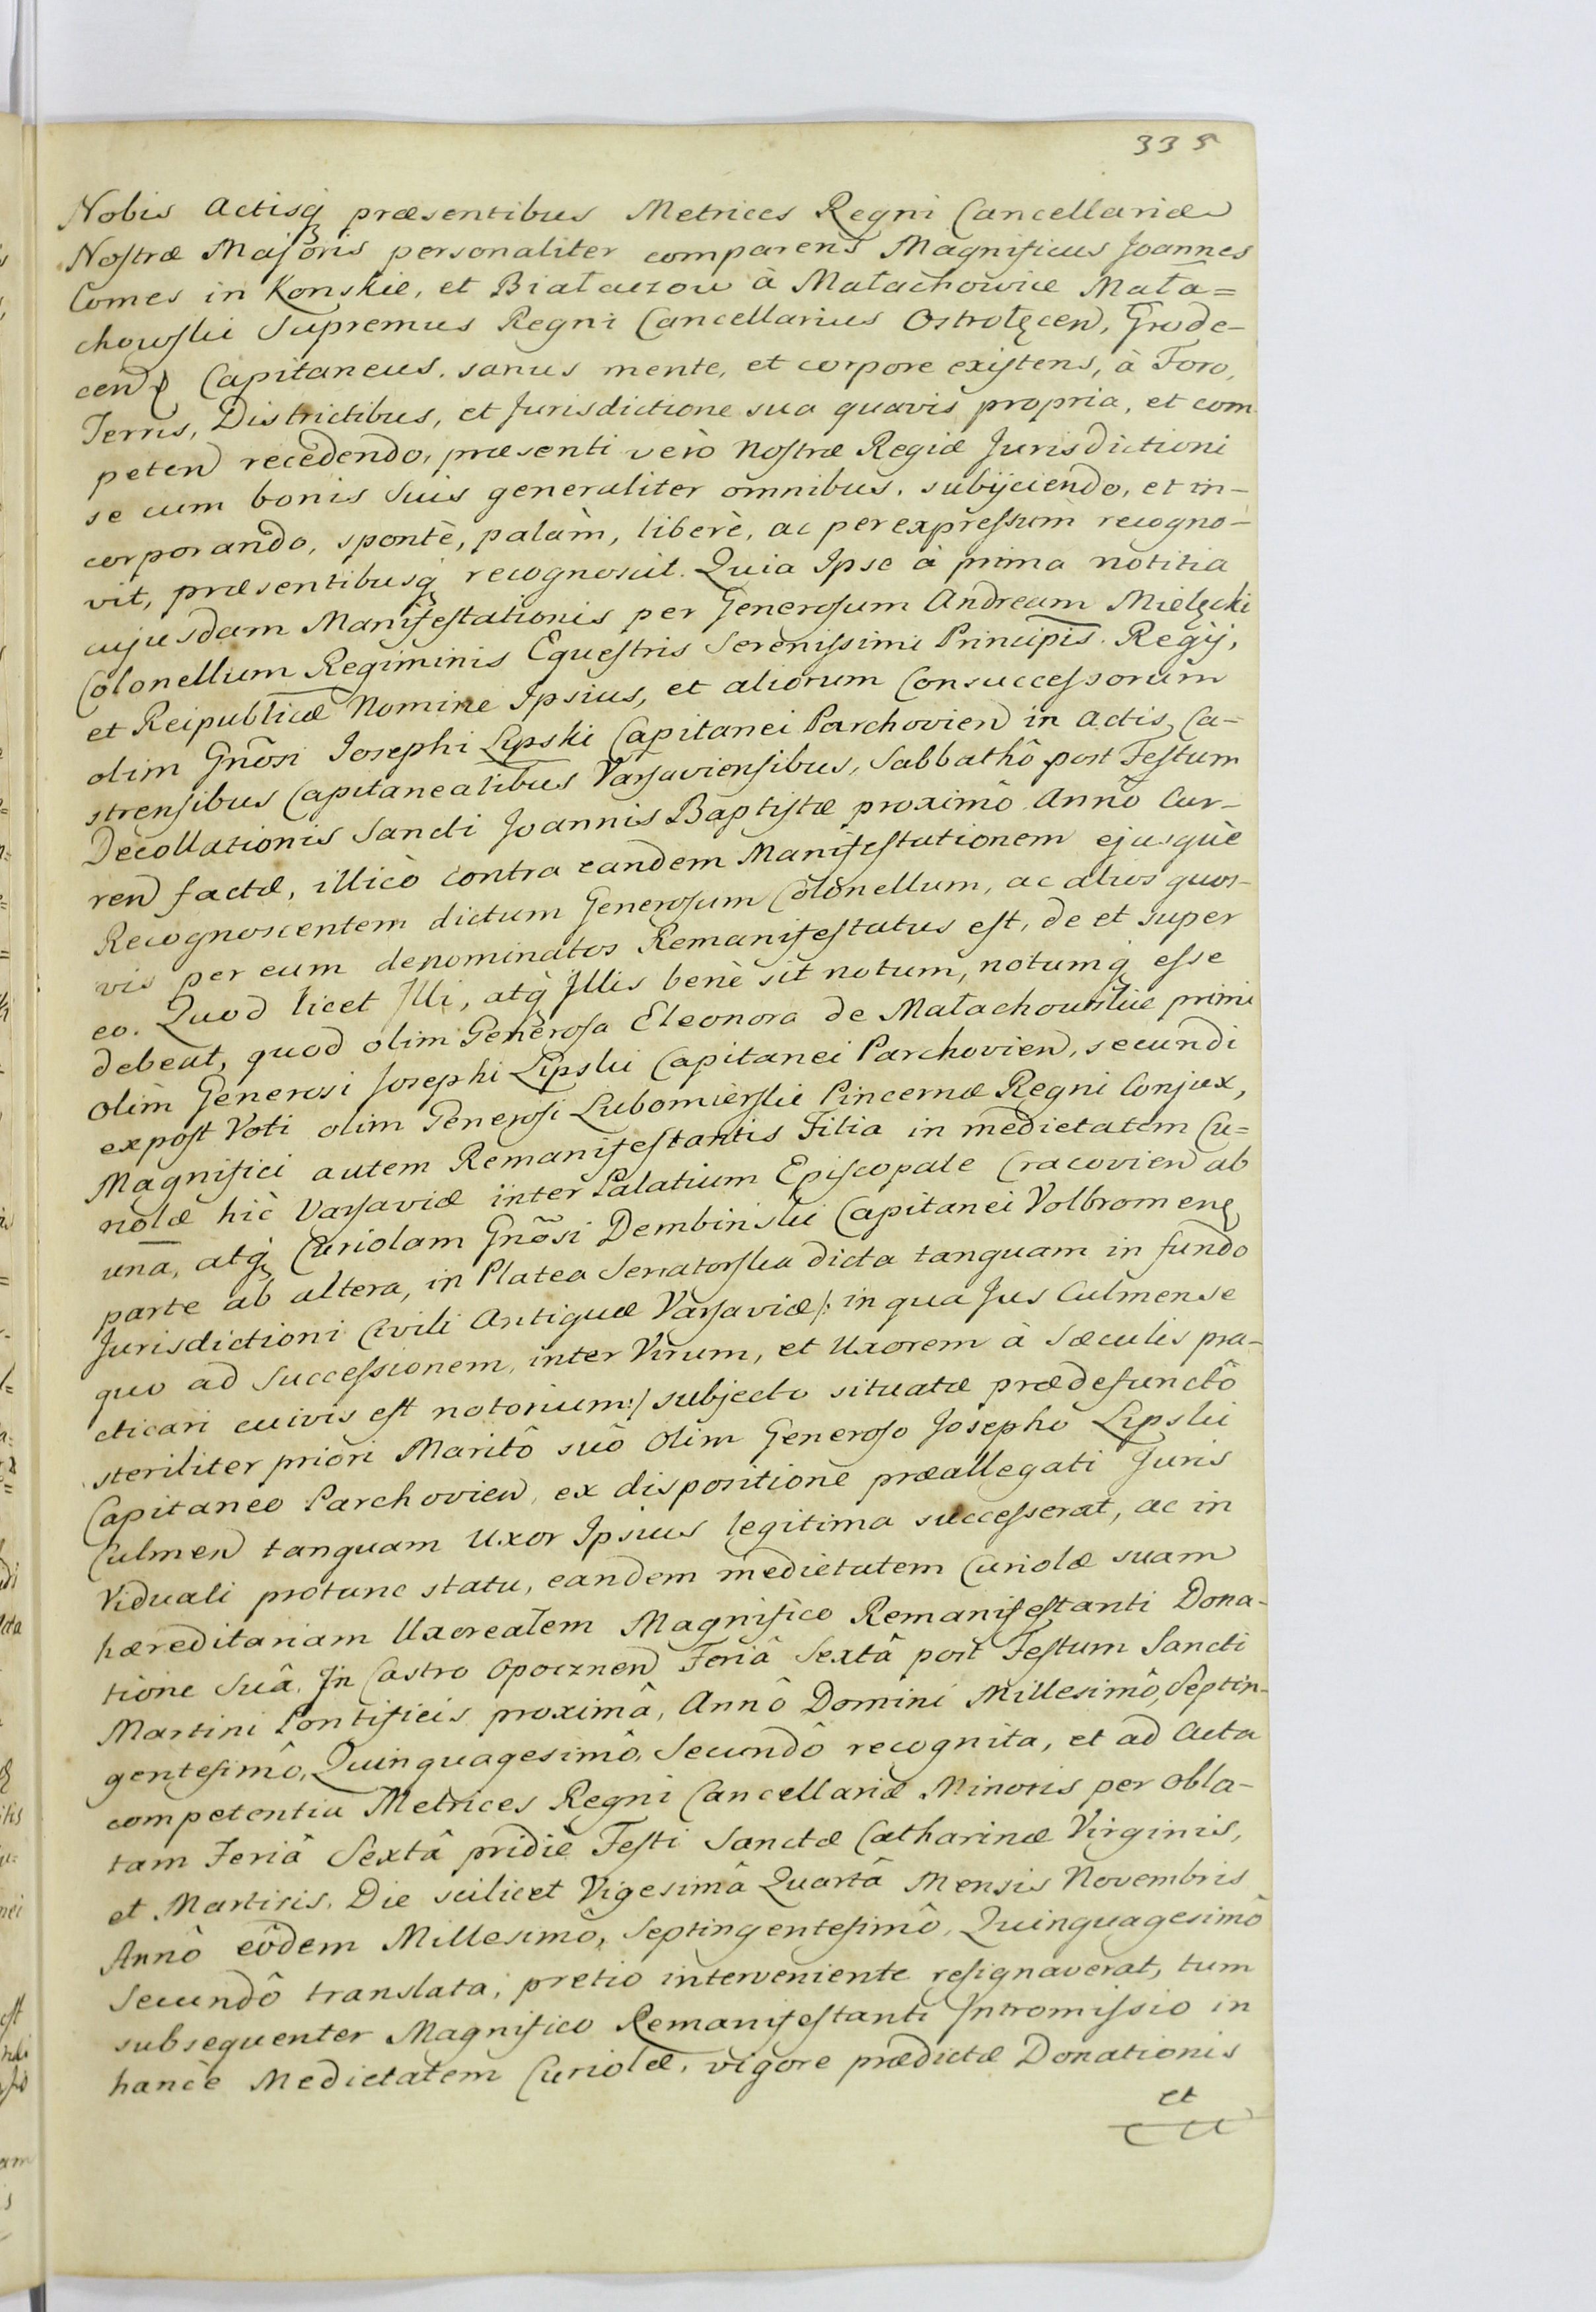 335
Nobis Actisq præsentibus Metrices Regni Cancellariæ
Nostræ Majoris personaliter comparens Magnificus Joannes
Comes in Konskie, et Białaczow à Małachowice Mała=
chowskie Supremus Regni Cancellarius Ostrołęcen, Grode-
cenq Capitaneus, sanus mente, et corpore existens, à Foro,
Terris, Districtibus, et Jurisdictione sua quavis propria, et com
peten recedendo, præsenti verò Nostræ Regiæ Jurisdictioni
se cum bonis Suis generaliter omnibus, subijciendo, et in-
corporando, spontè, palàm, liberè, ac per expressum recogno-
vit, præsentibusq recognoscit. Quia Ipse à prima notitia
cujusdam Manifestationis per Generosum Andream Mielęcki
Colonellum Regiminis Equestris Serenissimi Principis Regij,
et Reipublicæ Nomine Ipsius, et aliorum Consuccessorum
olim Gnõsi Josephi Lipski Capitanei Parchovien in Actis Ca-
strensibus Capitanealibus Varsaviensibus, Sabbathô post Festum
Decollationis Sancti Joannis Baptistæ proximô Annô Cur-
ren factæ, illicò contra eandem Manifestationem ejusquè
Recognoscentem dictum Generosum Colonellum, ac alios quos-
vis per eum denominatos Remanifestatus est, de et super
eo. Quod licet Illi, atq Illis benè sit notum, notumq esse
debeat, quod olim Generosa Eleonora de Małachowskie primi
olim Generosi Josephi Lipski Capitanei Parchovien, secundi
expost Voti olim Generosi Lubomirskie Pincernæ Regni Conjux,
Magnifici autem Remanifestantis Filia in medietatem Cu=
riolæ hìc Varsaviæ inter Palatium Episcopale Cracovien ab
una, atq Curiolam Gnõsi Dembinski Capitanei Volbromenq
parte ab altera, in Platea Senatorska dicta tanquam in fundo
Jurisdictioni Civili Antiquæ Varsaviæ /: in qua Jus Culmense
quo ad Successionem, inter Virum, et Uxorem à Sæculis pra-
cticari cuivis est notorium :/ subjecto situatæ prædefunctô
steriliter priori Maritô suô olim Generoso Josepho Lipski
Capitaneo Parchovien, ex dispositione præallegati Juris
Culmen tanquam Uxor Ipsius legitima successerat, ac in
Viduali protunc statu, eandem medietatem Curiolæ suam
hæreditariam Uxorealem Magnifico Remanifestanti Dona-
tione Suâ, In Castro Opocznen Feriâ Sextâ post Festum Sancti
Martini Pontificis proximâ, Annô Domini Millesimô, Septin-
gentesimô, Quinquagesimô, Secundô recognita, et ad Acta
competentia Metrices Regni Cancellariæ Minoris per obla-
tam Feriâ Sextâ pridiè Festi Sanctæ Catharinæ Virginis,
et Martiris, Die scilicet Vigesimâ Quartâ Mensis Novembris
Annô eôdem Millesimô, Septingentesimô, Quinquagesimô
Secundô translata, pretio interveniente resignaverat, tum
subsequenter Magnifico Remanifestanti Intromissio in
hancè Medietatem Curiolæ, vigore prædictæ Donationis
et